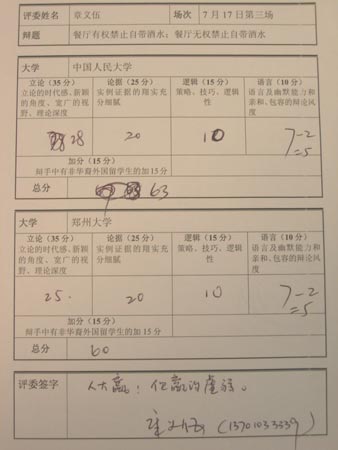 评委姓名 章文伍 场次 7月17日第三场
辩题 餐厅有权禁止自带酒水；餐厅无权禁止自带酒水
大学 中国人民大学
立论（35分） 论据（25分） 逻辑（15分） 语言（10分）
立论的时代感、新颖的角度、宽广的视野、理论深度 实例证据的翔实充分细腻 策略、技巧、逻辑性 语言及幽默能力和亲和、包容的辩论风度
28 20 10 7-2=5
加分（15分）
辩手中有非华裔外国留学生的加15分
总分 63
大学 郑州大学
立论（35分） 论据（25分） 逻辑（15分） 语言（10分）
立论的时代感、新颖的角度、宽广的视野、理论深度 实例证据的翔实充分细腻 策略、技巧、逻辑性 语言及幽默能力和亲和、包容的辩论风度
25. 20 10 7-2=5
加分（15分）
辩手中有非华裔外国留学生的加15分
总分 60
评委签字 人大赢：但赢的
(13701033339)